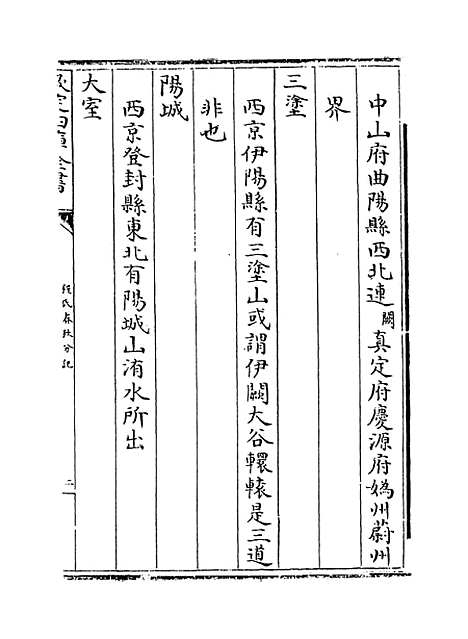 中山府曲陽縣西北連闕真定府慶源府媯州蔚州
界
三塗
西京伊陽縣有三塗山或謂伊闕大谷轘轅是三道
非也
陽城
西京登封縣東北有陽城山洧水所出
大室
欽定四庫全書
程氏春秋分記
二